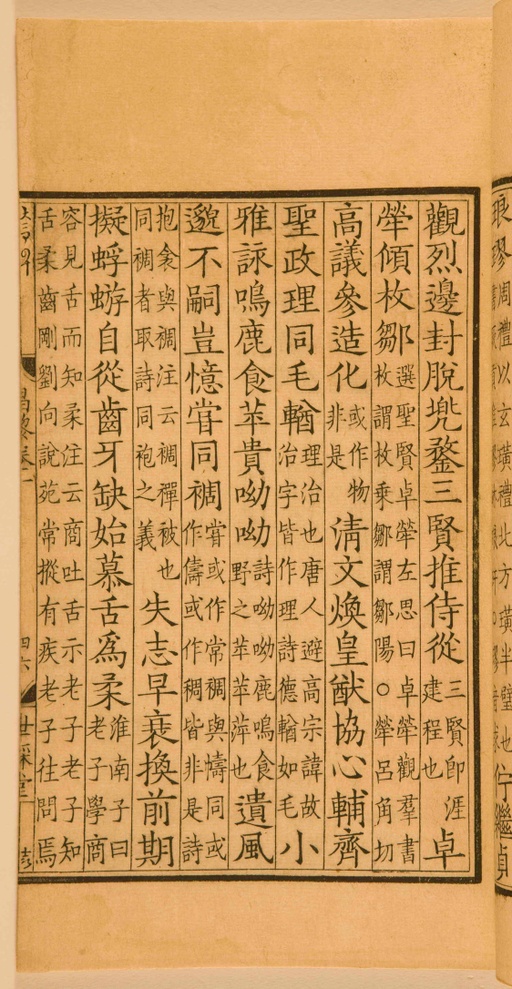 周禮以玄璜禮北方璜半璧也
佇繼
觀烈邊封脫兠鍪三賢推侍從三賢即涯建程也卓
犖傾枚鄒選聖賢卓犖左思曰卓犖觀羣書枚謂枚乘鄒謂鄒陽○犖呂角切
高議參造化或作物非是清文煥皇猷協心輔齊
聖政理同毛輶理治也唐人避高宗諱故治字皆作理詩德輶如毛小
雅詠鳴鹿食苹貴呦呦詩呦呦鹿鳴食野之苹苹萍也遺風
邈不嗣豈憶甞同裯甞或作常裯與幬同或作儔或作稠皆非是詩
抱衾與裯注云裯襌被也同裯者取詩同袍之義失志早衰換前期
擬蜉蝣自從齒牙缺始慕舌爲柔淮南子曰老子學商
容見舌而知柔注云商吐舌示老子老子知舌柔齒剛劉向說苑常摐有疾老子往問焉